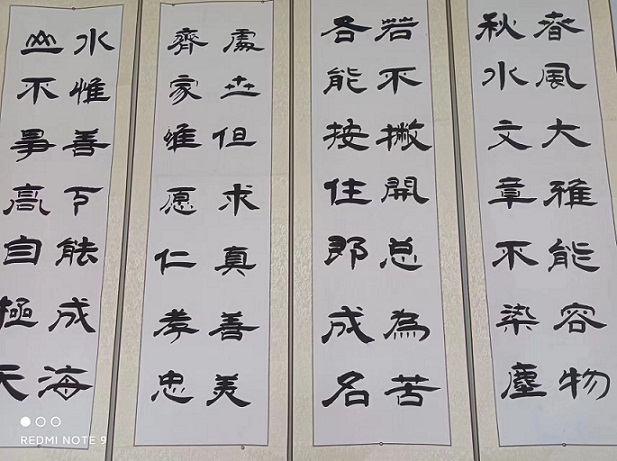 春風大雅能容物
秋水文章不染塵
若不撇開总為苦
各能按住即成名
處世但求真善美
齊家維愿仁孝忠
水惟善下能成海
山不爭高自極天
REDMI NOTE 9